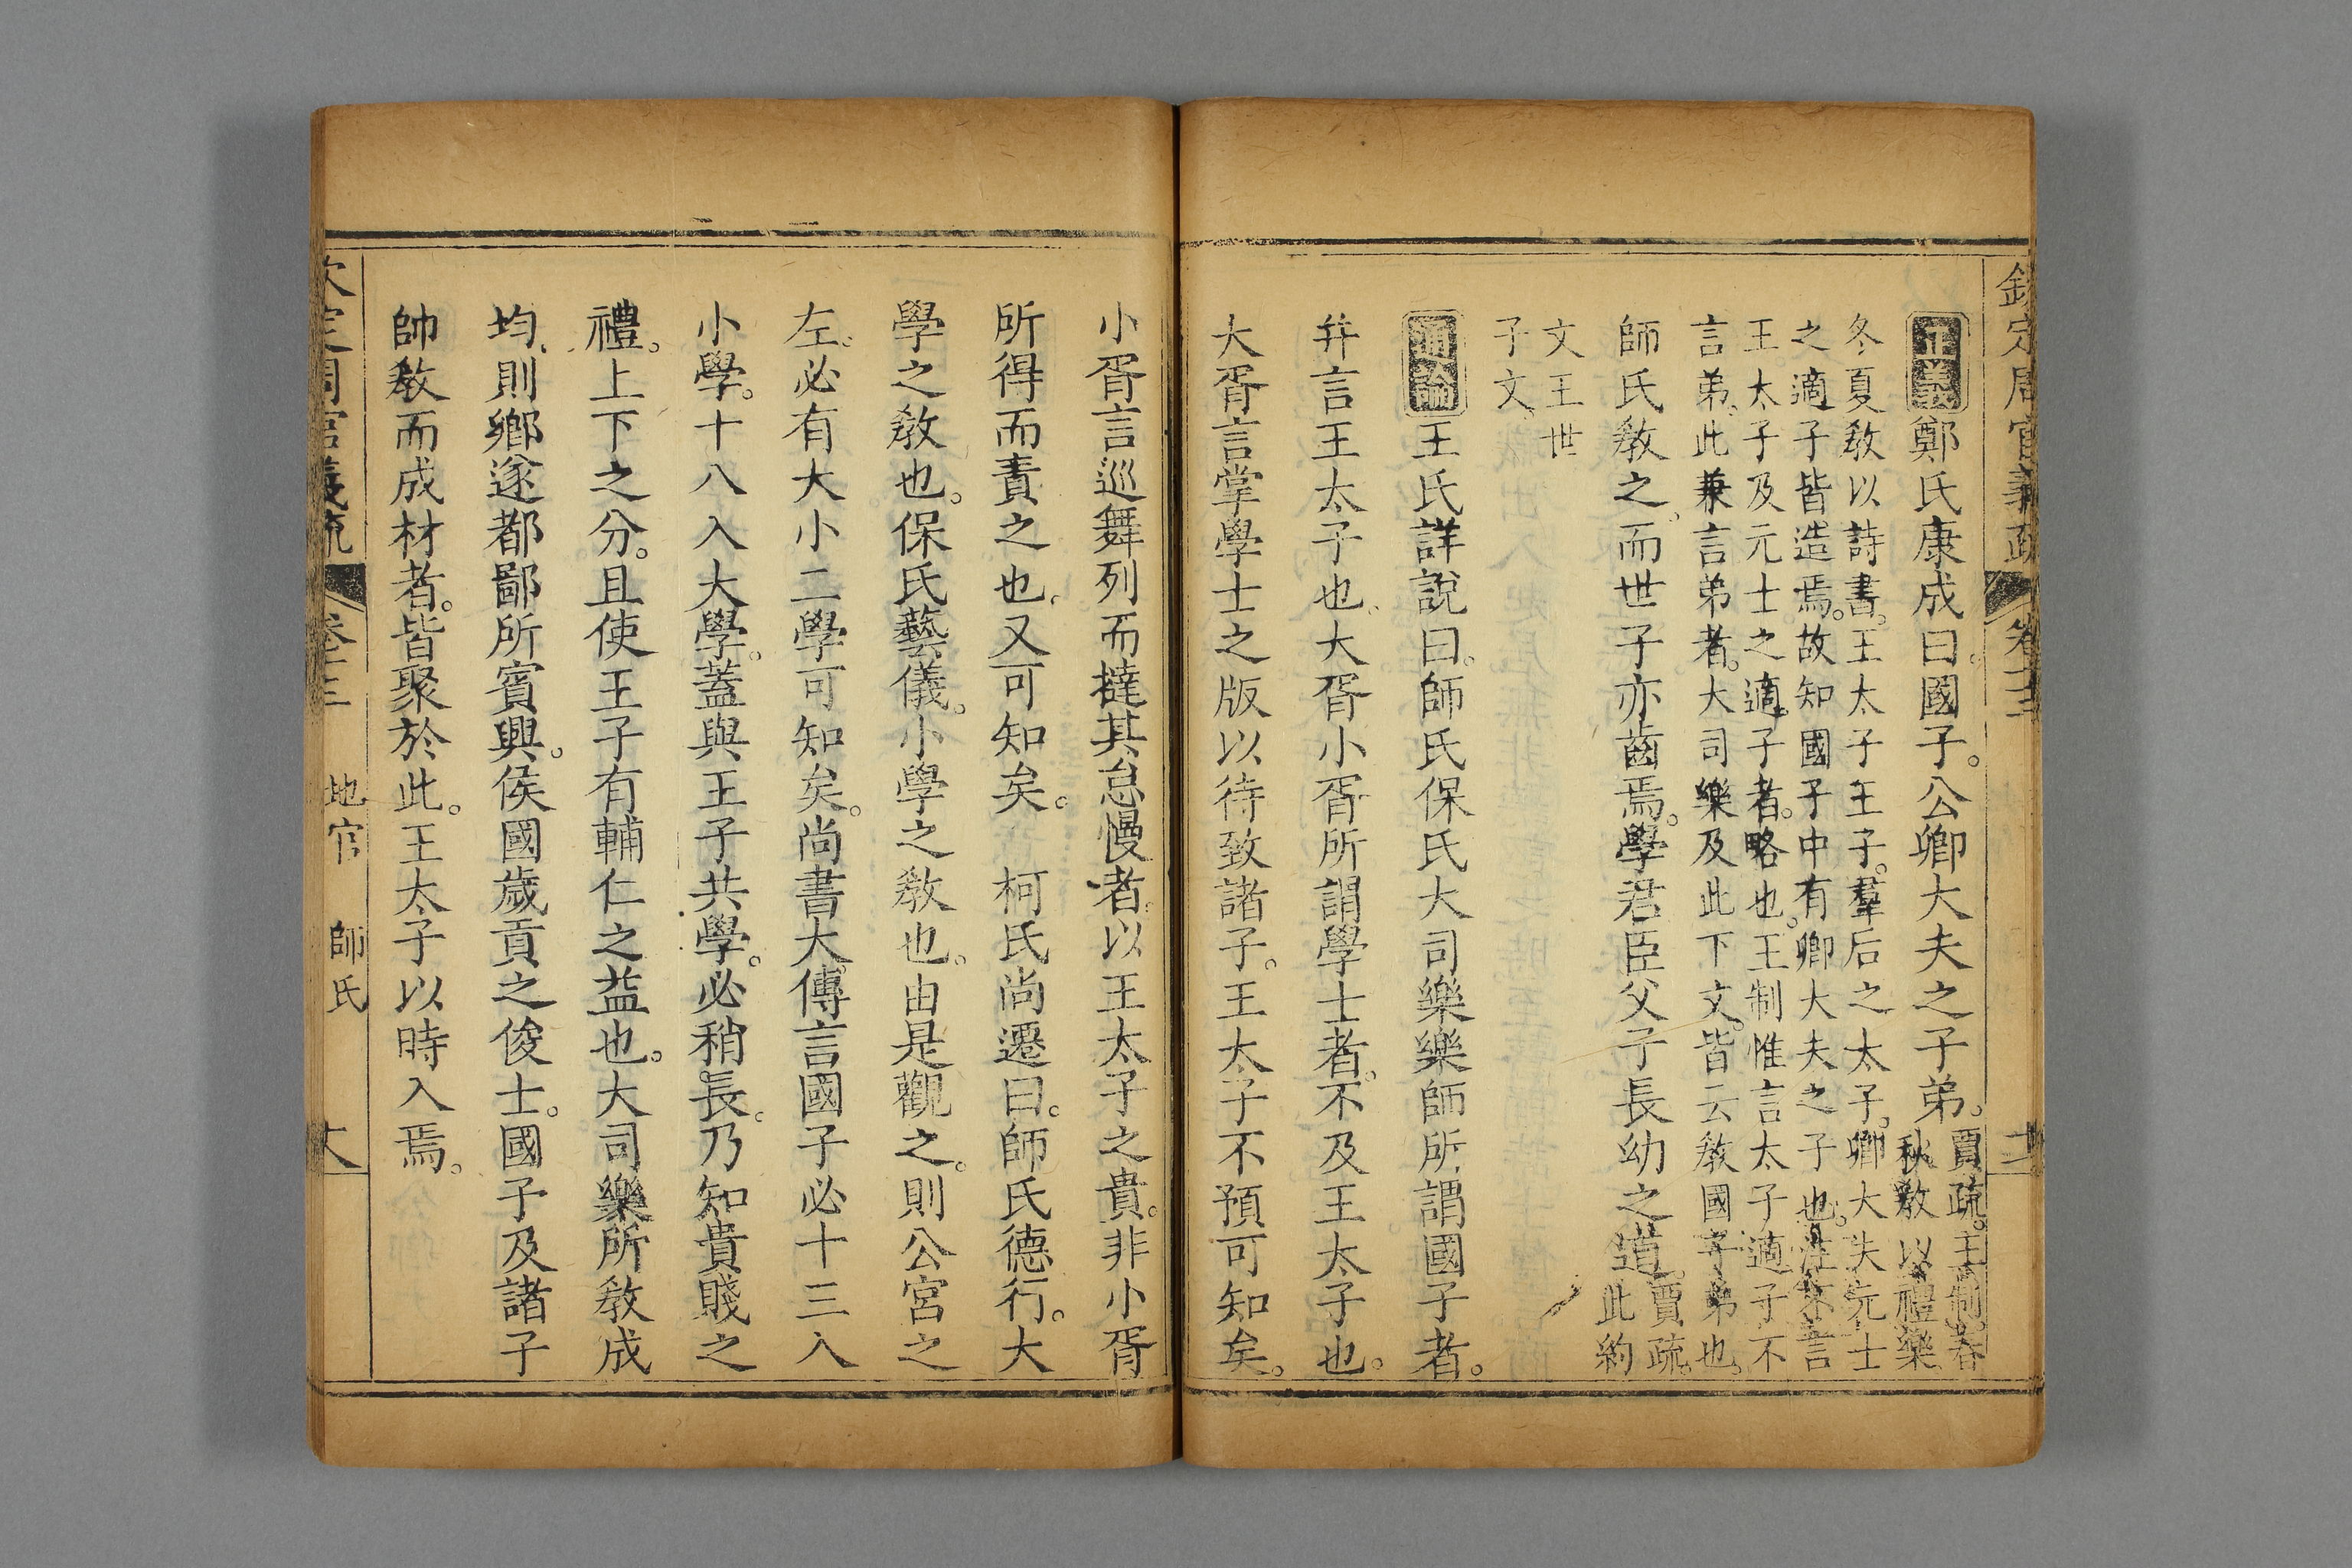 欽定周官義疏 卷十三
正義 鄭氏康成曰。國子。公卿大夫之子弟。賈疏。王制。春
秋敎以禮樂。
冬夏敎以詩書。王太子王子。羣后之太子。卿大夫元士
之適子皆造焉。故知國子中有卿大夫之子也。注不言
王太子及元士之適子者。略也。王制惟言太子適子不
言弟。此兼言弟者。大司樂及此下文。皆云敎國子弟也。
師氏敎之。而世子亦齒焉。學君臣父子長幼之道。賈疏。
此約
文王世
子文。
通論 王氏詳說曰。師氏保氏大司樂樂師所謂國子者。
幷言王太子也。大胥小胥所謂學士者。不及王太子也。
大胥言掌學士之版以待致諸子。王太子不預可知矣。
小胥言巡舞列而撻其怠慢者。以王太子之貴。非小胥
所得而責之也。又可知矣。 柯氏尚遷曰。師氏德行。大
學之敎也。保氏藝儀。小學之敎也。由是觀之。則公宮之
左。必有大小二學可知矣。尚書大傳言國子必十三入
小學。十八入大學。蓋與王子共學。必稍長。乃知貴賤之
禮。上下之分。且使王子有輔仁之益也。大司樂所敎成
均。則鄉遂都鄙所賓興。侯國歲貢之俊士。國子及諸子
帥敎而成材者。皆聚於此。王太子以時入焉。
欽定周官義疏 卷十三 地官 師氏